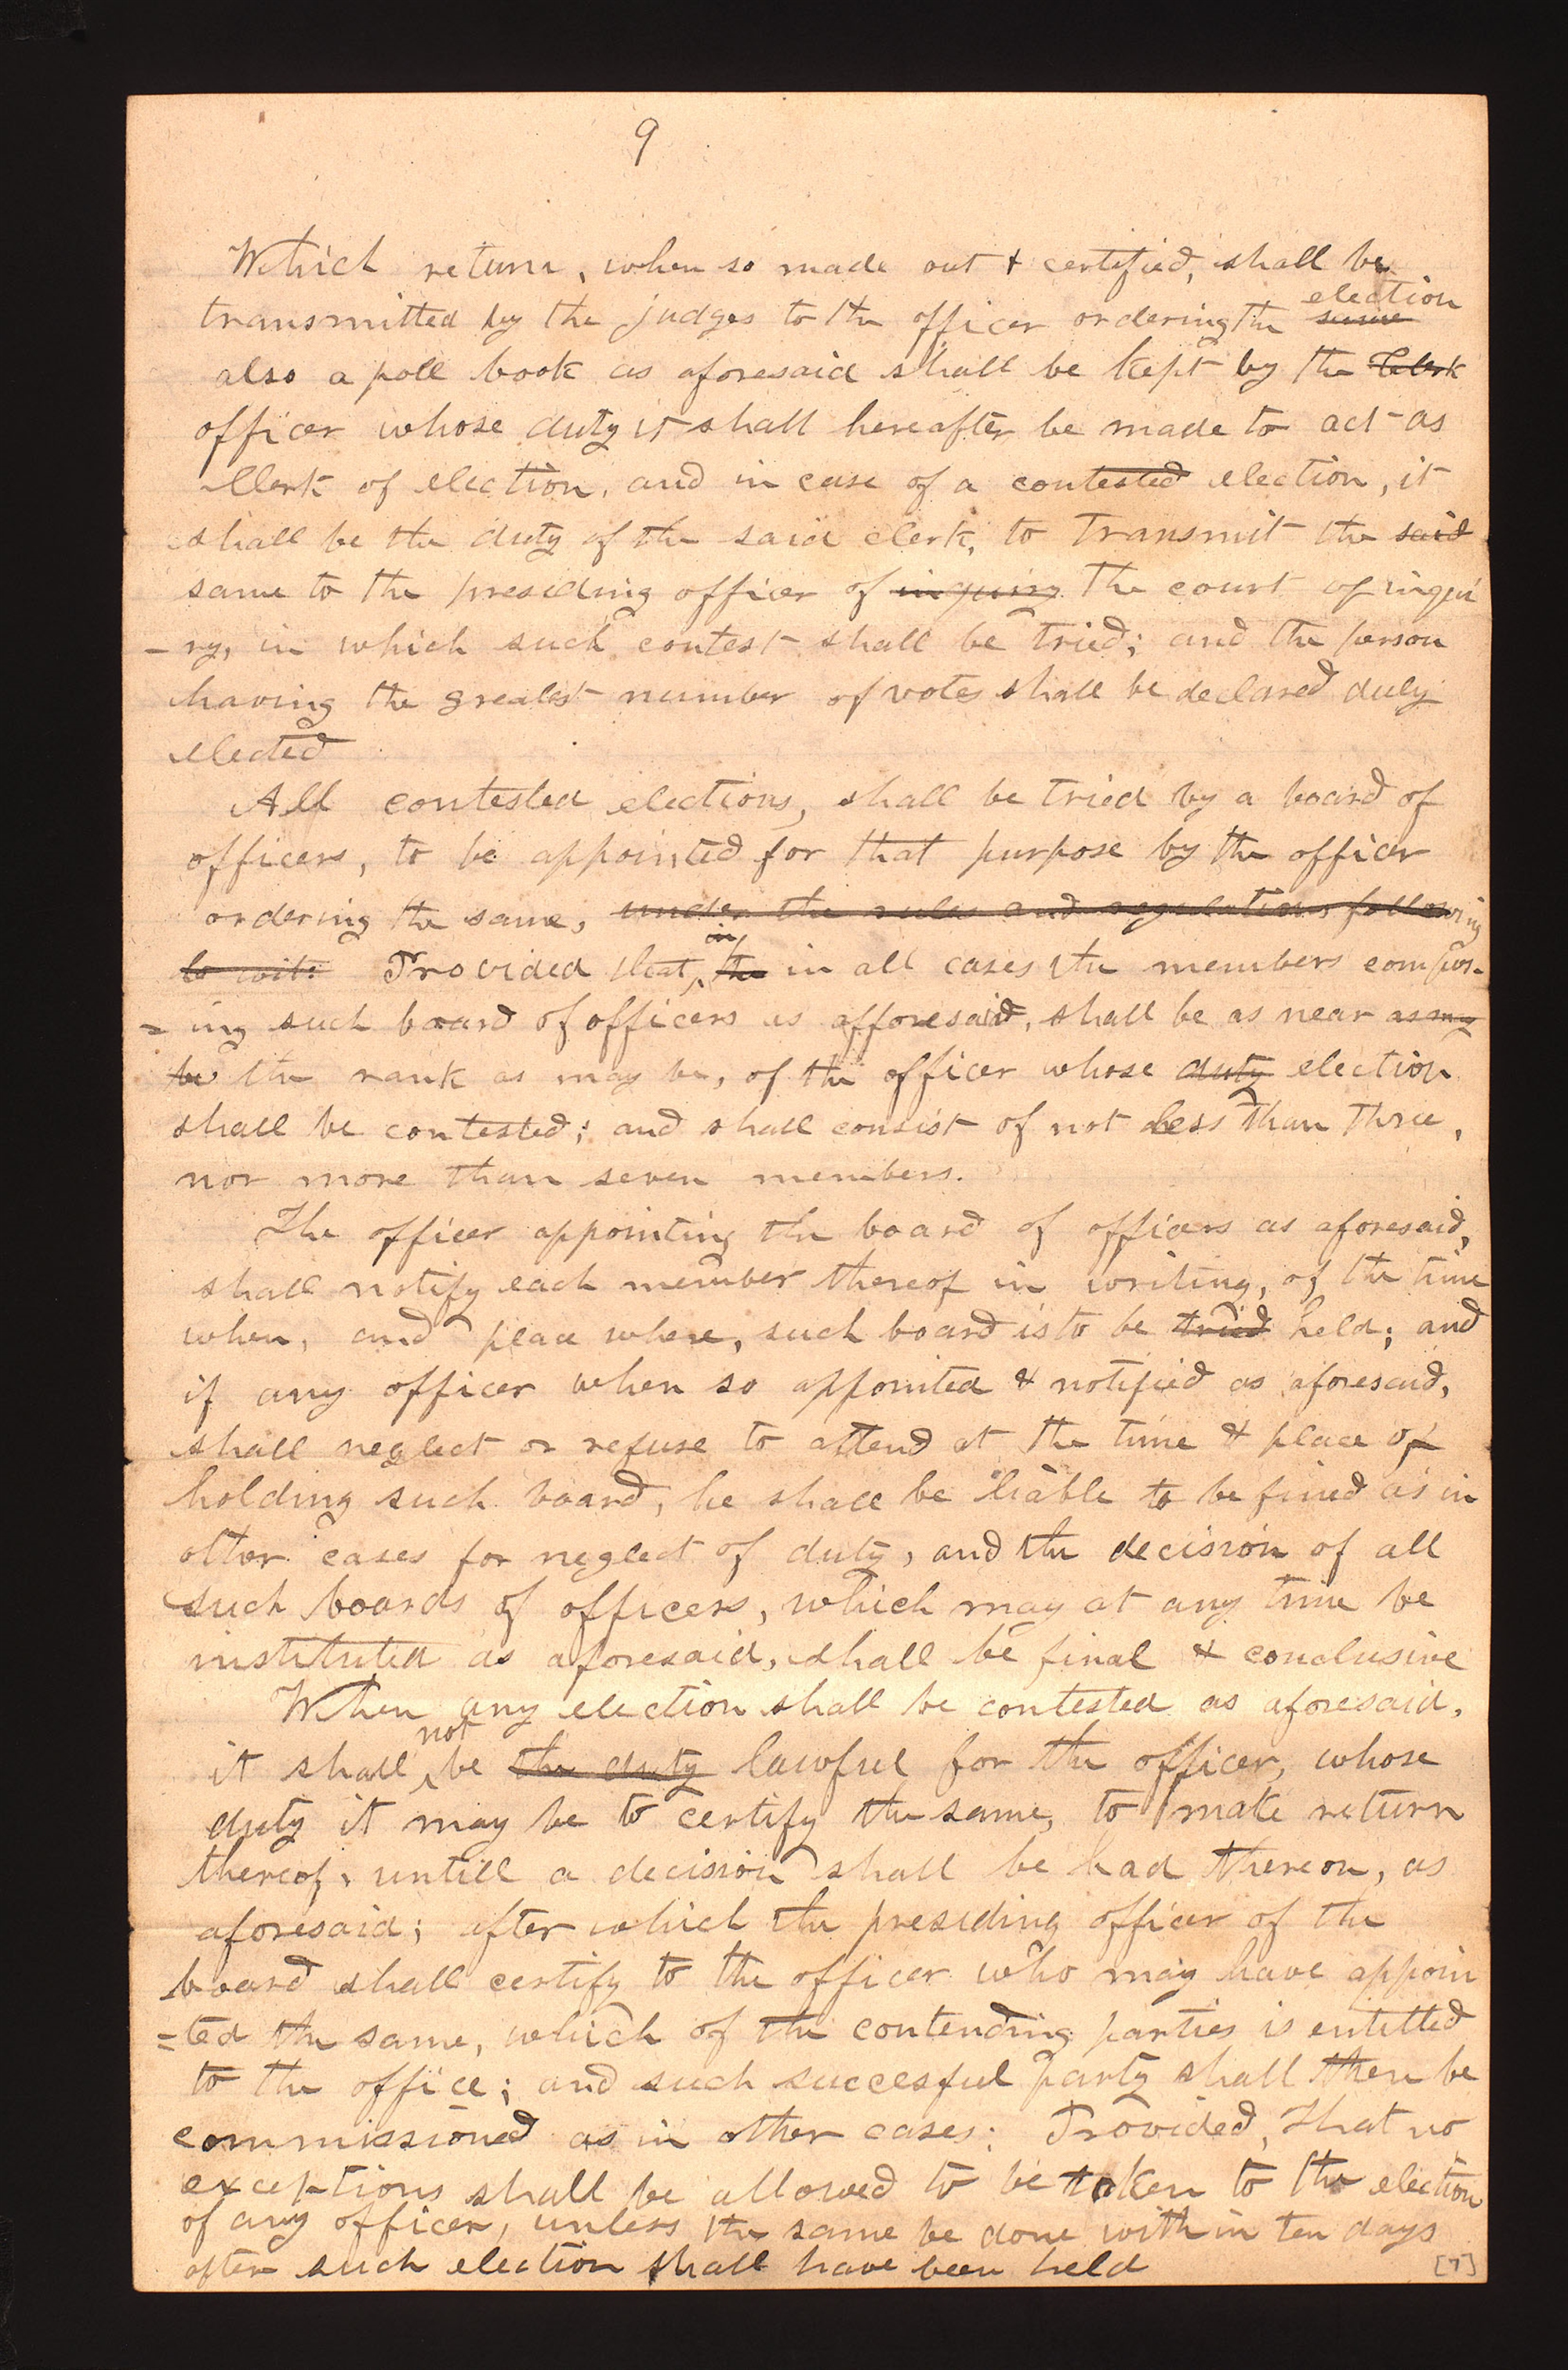 9
Which return, when so made out & certified, shall be
transmitted by the judges to the officer ordering the same election
also a poll book as aforesaid shall be kept by the Clerk
officer whose duty it shall hereafter be made to act as
Clerk of election, and in case of a contested election, it
shall be the duty of the said clerk, to transmit the said
same to the presiding officer of inquiry the court of inqui
-ry, in which such contest shall be tried; and the person
having the greatest number of votes shall be declared duly
elected
All contested elections, shall be tried by a board of
officers, to be appointed for that purpose by the officer
ordering the same, under the rules and regulations following
to wit: Provided that, in the in all cases the members compos-
= ing such board of officers as afforesaid, shall be as near as may
be the rank as may be, of the officer whose duty election
shall be contested; and shall consist of not less than three,
nor more than seven members.
The officer appointing the board of officers as aforesaid,
shall notify each member thereof in writing, of the time
when, and place where, such board is to be tried held; and
if any officer when so appointed & notified as aforesaid,
shall neglect or refuse to attend at the time & place of
holding such board, he shall be liable to be fined as in
other cases for neglect of duty, and the decision of all
such boards of officers, which may at any time be
instituted as aforesaid, shall be final & conclusive
When any election shall be contested as aforesaid,
it shall not be the duty lawful for the officer, whose
duty it may be to certify the same, to make return
thereof, untill a decision shall be had thereon, as
aforesaid; after which the presiding officer of the
board shall certify to the officer who may have appoin
=ted the same, which of the contending parties is entitled
to the office; and such succesful party shall then be
commissioned as in other cases: Provided, that no
exceptions shall be allowed to be taken to the election
of any officer, unless the same be done within ten days
after such election shall have been held
[7]